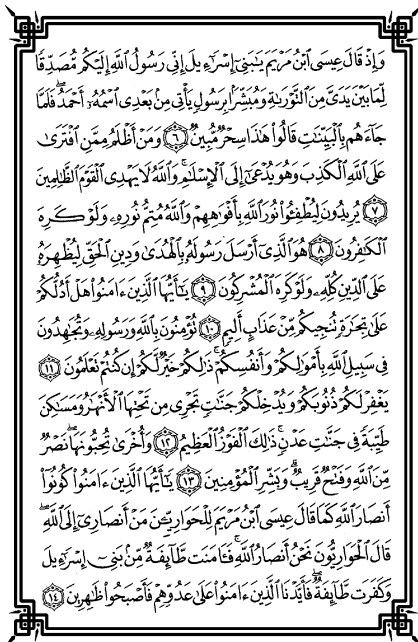 وَإِذْ قَالَ عِيسَى ابْنُ مَرْيَمَ يَـٰبَنِىٓ إِسْرَٰٓءِيلَ إِنِّى رَسُولُ ٱللَّهِ إِلَيْكُم مُّصَدِّقًا
لِّمَا بَيْنَ يَدَىَّ مِنَ ٱلتَّوْرَىٰةِ وَمُبَشِّرًۢا بِرَسُولٍ يَأْتِى مِنۢ بَعْدِى ٱسْمُهُۥٓ أَحْمَدُ ۖ فَلَمَّا
جَآءَهُم بِٱلْبَيِّنَـٰتِ قَالُوا۟ هَـٰذَا سِحْرٌ مُّبِينٌ ٦ وَمَنْ أَظْلَمُ مِمَّنِ ٱفْتَرَىٰ
عَلَى ٱللَّهِ ٱلْكَذِبَ وَهُوَ يُدْعَىٰٓ إِلَى ٱلْإِسْلَـٰمِ ۚ وَٱللَّهُ لَا يَهْدِى ٱلْقَوْمَ ٱلظَّـٰلِمِينَ
٧ يُرِيدُونَ لِيُطْفِـُٔوا۟ نُورَ ٱللَّهِ بِأَفْوَٰهِهِمْ وَٱللَّهُ مُتِمُّ نُورِهِۦ وَلَوْ كَرِهَ
ٱلْكَـٰفِرُونَ ٨ هُوَ ٱلَّذِىٓ أَرْسَلَ رَسُولَهُۥ بِٱلْهُدَىٰ وَدِينِ ٱلْحَقِّ لِيُظْهِرَهُۥ
عَلَى ٱلدِّينِ كُلِّهِۦ وَلَوْ كَرِهَ ٱلْمُشْرِكُونَ ٩ يَـٰٓأَيُّهَا ٱلَّذِينَ ءَامَنُوا۟ هَلْ أَدُلُّكُمْ
عَلَىٰ تِجَـٰرَةٍ تُنجِيكُم مِّنْ عَذَابٍ أَلِيمٍ ١٠ تُؤْمِنُونَ بِٱللَّهِ وَرَسُولِهِۦ وَتُجَـٰهِدُونَ
فِى سَبِيلِ ٱللَّهِ بِأَمْوَٰلِكُمْ وَأَنفُسِكُمْ ۚ ذَٰلِكُمْ خَيْرٌ لَّكُمْ إِن كُنتُمْ تَعْلَمُونَ ١١
يَغْفِرْ لَكُمْ ذُنُوبَكُمْ وَيُدْخِلْكُمْ جَنَّـٰتٍ تَجْرِى مِن تَحْتِهَا ٱلْأَنْهَـٰرُ وَمَسَـٰكِنَ
طَيِّبَةً فِى جَنَّـٰتِ عَدْنٍ ۚ ذَٰلِكَ ٱلْفَوْزُ ٱلْعَظِيمُ ١٢ وَأُخْرَىٰ تُحِبُّونَهَا ۖ نَصْرٌ
مِّنَ ٱللَّهِ وَفَتْحٌ قَرِيبٌ ۗ وَبَشِّرِ ٱلْمُؤْمِنِينَ ١٣ يَـٰٓأَيُّهَا ٱلَّذِينَ ءَامَنُوا۟ كُونُوٓا۟
أَنصَارَ ٱللَّهِ كَمَا قَالَ عِيسَى ٱبْنُ مَرْيَمَ لِلْحَوَارِيِّـۧنَ مَنْ أَنصَارِىٓ إِلَى ٱللَّهِ ۖ
قَالَ ٱلْحَوَارِيُّونَ نَحْنُ أَنصَارُ ٱللَّهِ ۖ فَـَٔامَنَت طَّآئِفَةٌ مِّنۢ بَنِىٓ إِسْرَٰٓءِيلَ
وَكَفَرَت طَّآئِفَةٌ ۖ فَأَيَّدْنَا ٱلَّذِينَ ءَامَنُوا۟ عَلَىٰ عَدُوِّهِمْ فَأَصْبَحُوا۟ ظَـٰهِرِينَ ١٤